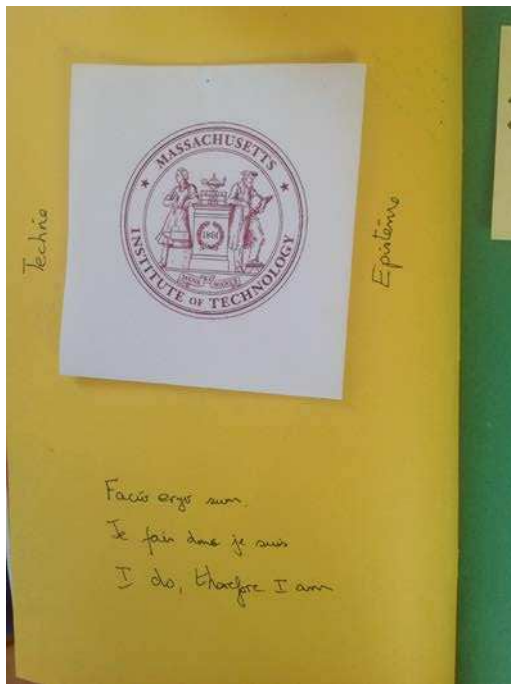 Techne
MASSACHUSETTS
INSTITUTE OF TECHNOLOGY
1861
MENS ET MANUS
Epistēmē
Facio ergo sum.
Je fais donc je suis
I do, therefore I am